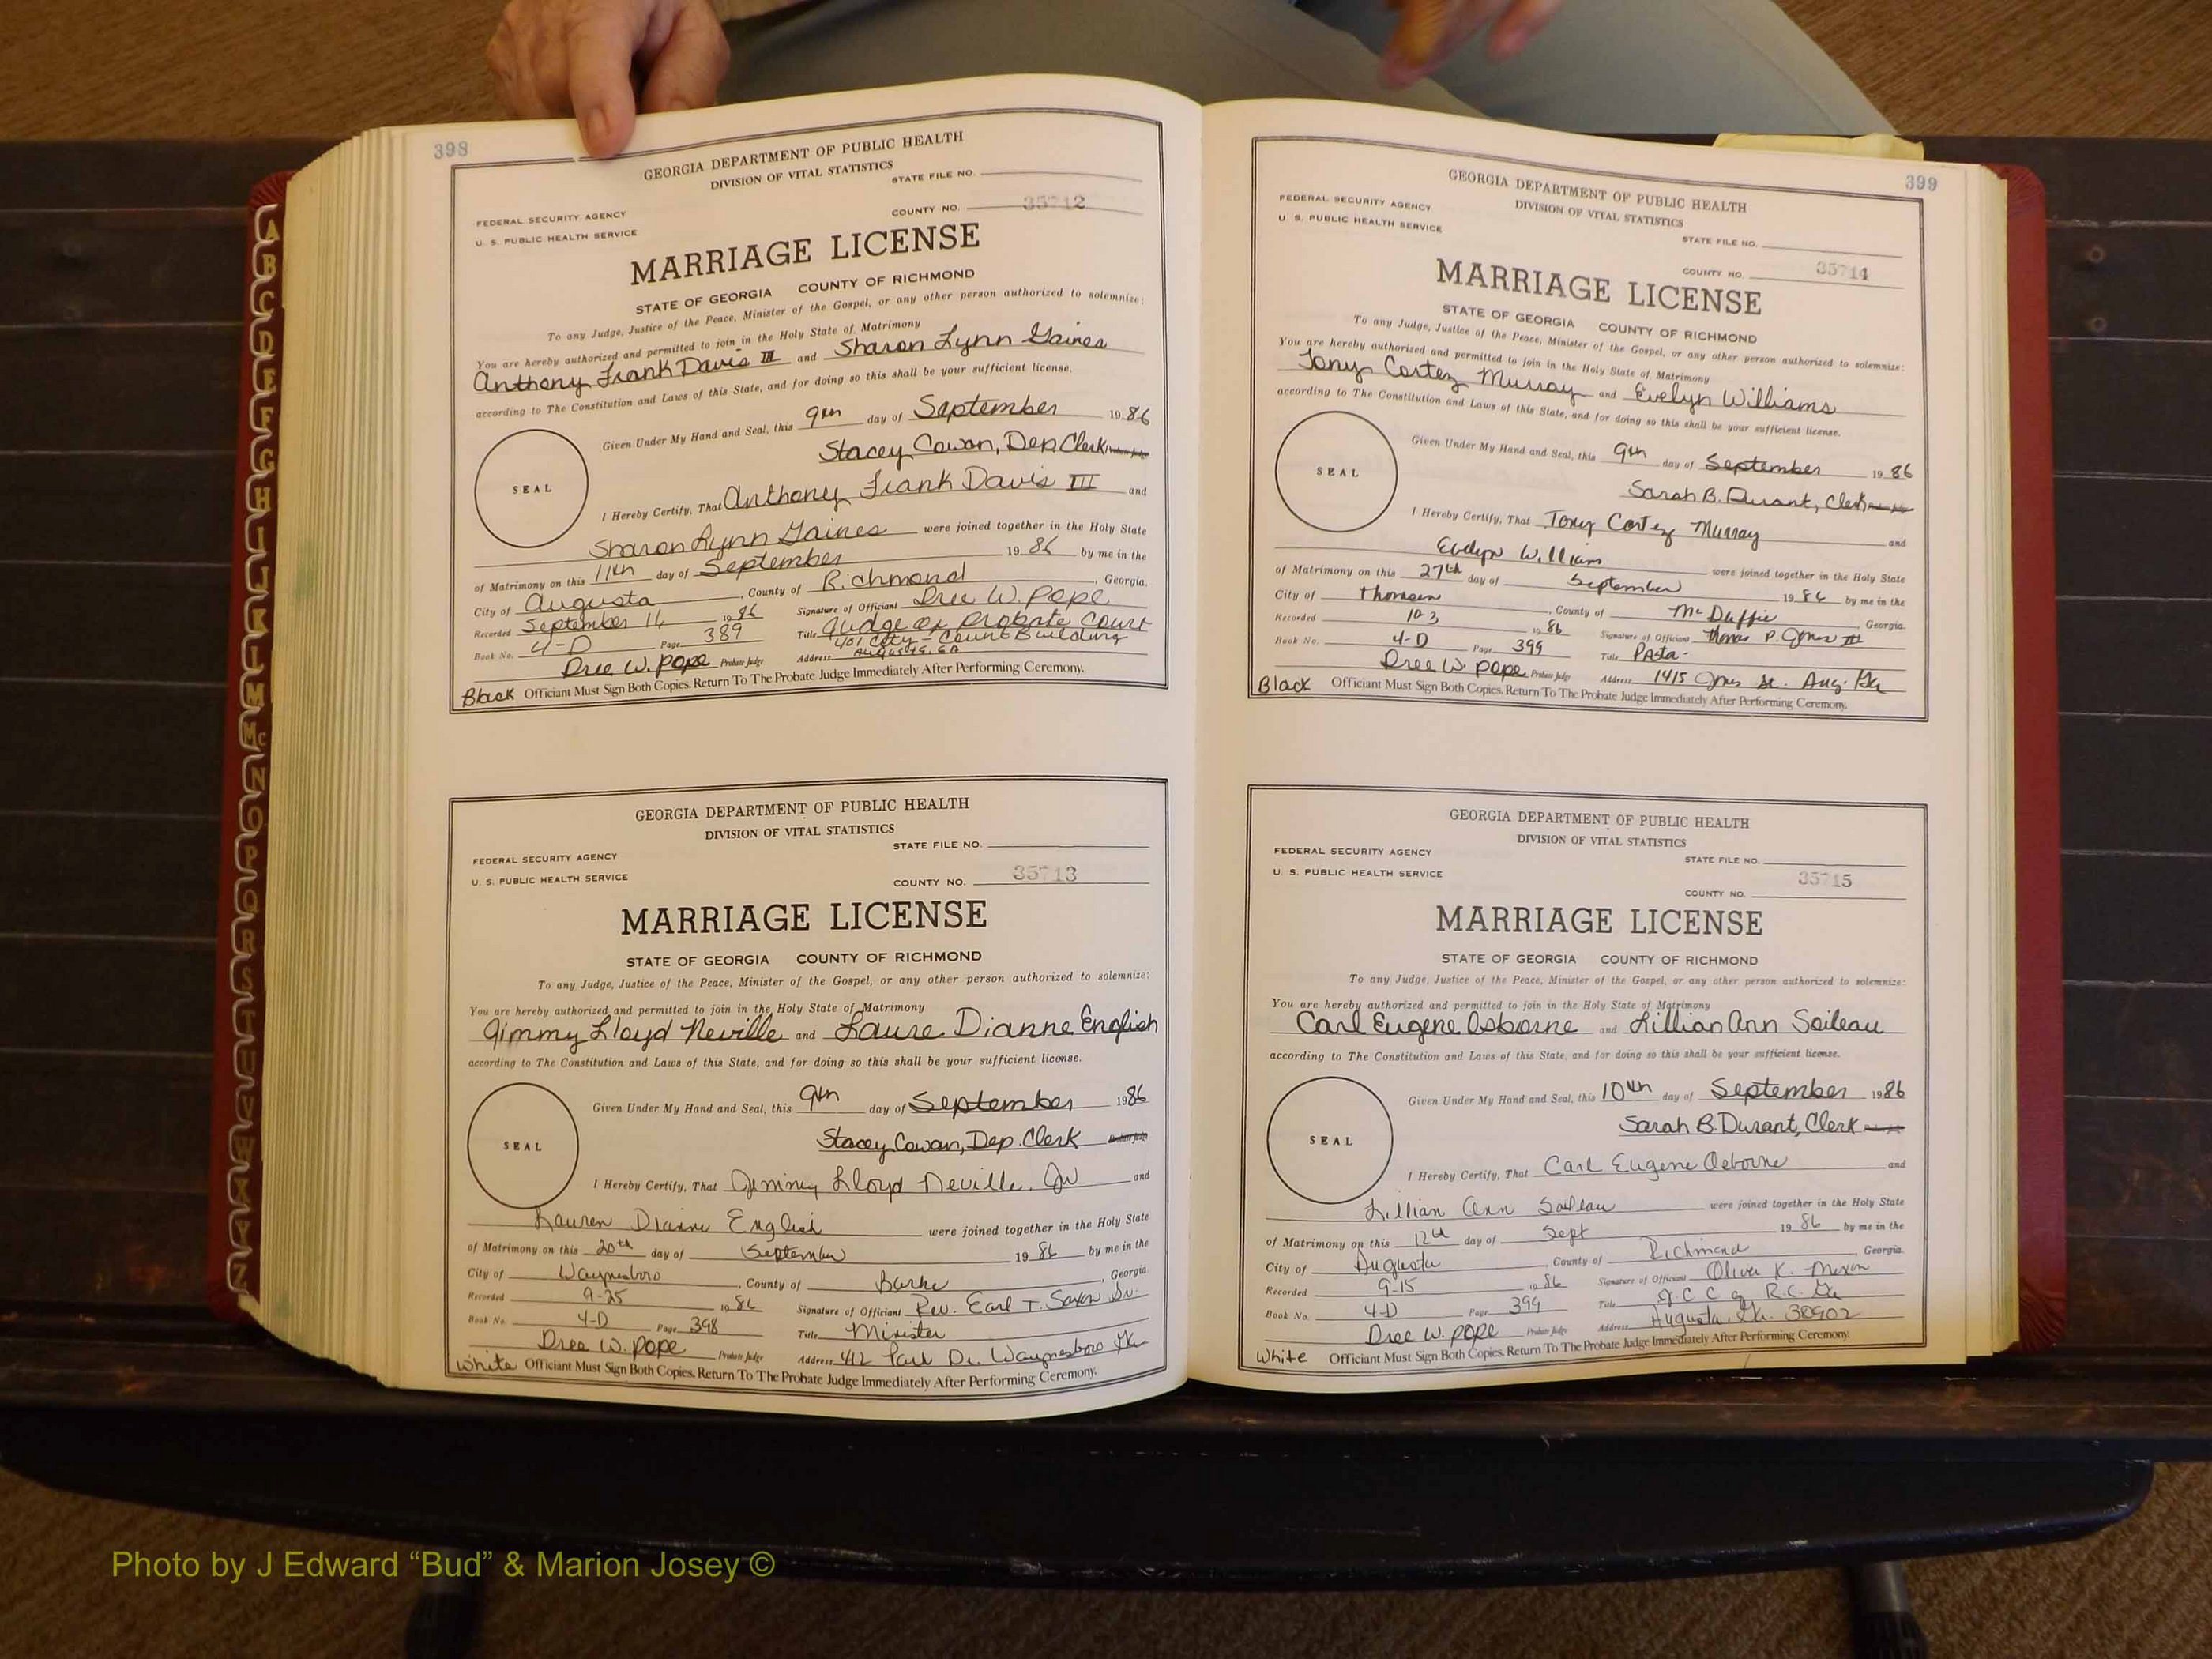 398
GEORGIA DEPARTMENT OF PUBLIC HEALTH
DIVISION OF VITAL STATISTICS
STATE FILE NO.
FEDERAL SECURITY AGENCY
COUNTY NO. 35712
U. S. PUBLIC HEALTH SERVICE
MARRIAGE LICENSE
STATE OF GEORGIA COUNTY OF RICHMOND
To any Judge, Justice of the Peace, Minister of the Gospel, or any other person authorized to solemnize:
You are hereby authorized and permitted to join in the Holy State of Matrimony
Anthony Frank Davis III and Sharon Lynn Gaines
according to The Constitution and Laws of this State, and for doing so this shall be your sufficient license.
Given Under My Hand and Seal, this 9th day of September 19 86
Stacey Cowan, Dep. Clerk Probate Judge
SEAL
I Hereby Certify, That Anthony Frank Davis III and
Sharon Lynn Gaines were joined together in the Holy State
of Matrimony on this 11th day of September 19 86 by me in the
City of Augusta, County of Richmond, Georgia.
Recorded September 16 1986 Signature of Officiant Dree W. Pope
Book No. 4-D Page 389 Title Judge of Probate Court
Dree W. Pope Probate Judge Address 401 City-County Building
Augusta, GA
Black Officiant Must Sign Both Copies. Return To The Probate Judge Immediately After Performing Ceremony.
GEORGIA DEPARTMENT OF PUBLIC HEALTH
DIVISION OF VITAL STATISTICS
STATE FILE NO.
FEDERAL SECURITY AGENCY
COUNTY NO. 35713
U. S. PUBLIC HEALTH SERVICE
MARRIAGE LICENSE
STATE OF GEORGIA COUNTY OF RICHMOND
To any Judge, Justice of the Peace, Minister of the Gospel, or any other person authorized to solemnize:
You are hereby authorized and permitted to join in the Holy State of Matrimony
Jimmy Lloyd Neville and Laure Dianne English
according to The Constitution and Laws of this State, and for doing so this shall be your sufficient license.
Given Under My Hand and Seal, this 9th day of September 1986
Stacey Cowan, Dep. Clerk Probate Judge
SEAL
I Hereby Certify, That Jimmy Lloyd Neville, Jr and
Lauren Dianne English were joined together in the Holy State
of Matrimony on this 20th day of September 19 86 by me in the
City of Waynesboro, County of Burke, Georgia
Recorded 9-25 1986 Signature of Officiant Rev. Earl T. Saxon Sr.
Book No. 4-D Page 398 Title Minister
Dree W. Pope Probate Judge Address 412 Park Dr. Waynesboro Ga
White Officiant Must Sign Both Copies. Return To The Probate Judge Immediately After Performing Ceremony.
399
GEORGIA DEPARTMENT OF PUBLIC HEALTH
DIVISION OF VITAL STATISTICS
FEDERAL SECURITY AGENCY
U. S. PUBLIC HEALTH SERVICE
STATE FILE NO.
COUNTY NO. 35714
MARRIAGE LICENSE
STATE OF GEORGIA COUNTY OF RICHMOND
To any Judge, Justice of the Peace, Minister of the Gospel, or any other person authorized to solemnize:
You are hereby authorized and permitted to join in the Holy State of Matrimony
Tony Cortez Murray and Evelyn Williams
according to The Constitution and Laws of this State, and for doing so this shall be your sufficient license.
Given Under My Hand and Seal, this 9th day of September 19 86
Sarah B. Durant, Clerk
SEAL
I Hereby Certify, That Tony Cortez Murray and
Evelyn William were joined together in the Holy State
of Matrimony on this 27th day of September 19 86 by me in the
City of Thomson, County of McDuffie Georgia.
Recorded 10-3 1986 Signature of Officiant Thomas P. Jones III
Book No. 4-D Page 399 Title Pasta-
Dree W. Pope Probate Judge Address 1415 Jones St. Aug. Ga
Black Officiant Must Sign Both Copies. Return To The Probate Judge Immediately After Performing Ceremony.
GEORGIA DEPARTMENT OF PUBLIC HEALTH
DIVISION OF VITAL STATISTICS
FEDERAL SECURITY AGENCY
STATE FILE NO.
U. S. PUBLIC HEALTH SERVICE
COUNTY NO. 35715
MARRIAGE LICENSE
STATE OF GEORGIA COUNTY OF RICHMOND
To any Judge, Justice of the Peace, Minister of the Gospel, or any other person authorized to solemnize:
You are hereby authorized and permitted to join in the Holy State of Matrimony
Carl Eugene Osborne and Lillian Ann Soileau
according to The Constitution and Laws of this State, and for doing so this shall be your sufficient license.
Given Under My Hand and Seal, this 10th day of September 1986
Sarah B. Durant, Clerk
SEAL
I Hereby Certify, That Carl Eugene Osborne and
Lillian Ann Soileau were joined together in the Holy State
of Matrimony on this 12th day of Sept 19 86 by me in the
City of Augusta, County of Richmond, Georgia.
Recorded 9-15 1986 Signature of Officiant Oliver K. Mixon
Book No. 4-D Page 399 Title J.C C of R.C. Ga
Dree W. Pope Probate Judge Address Augusta, Ga. 30902
White Officiant Must Sign Both Copies. Return To The Probate Judge Immediately After Performing Ceremony.
A
B
C
D
E
F
G
H
I
J
K
L
M
Mc
N
O
P
Q
R
S
T
U
V
W
X
Y
Z
Photo by J Edward “Bud” & Marion Josey ©